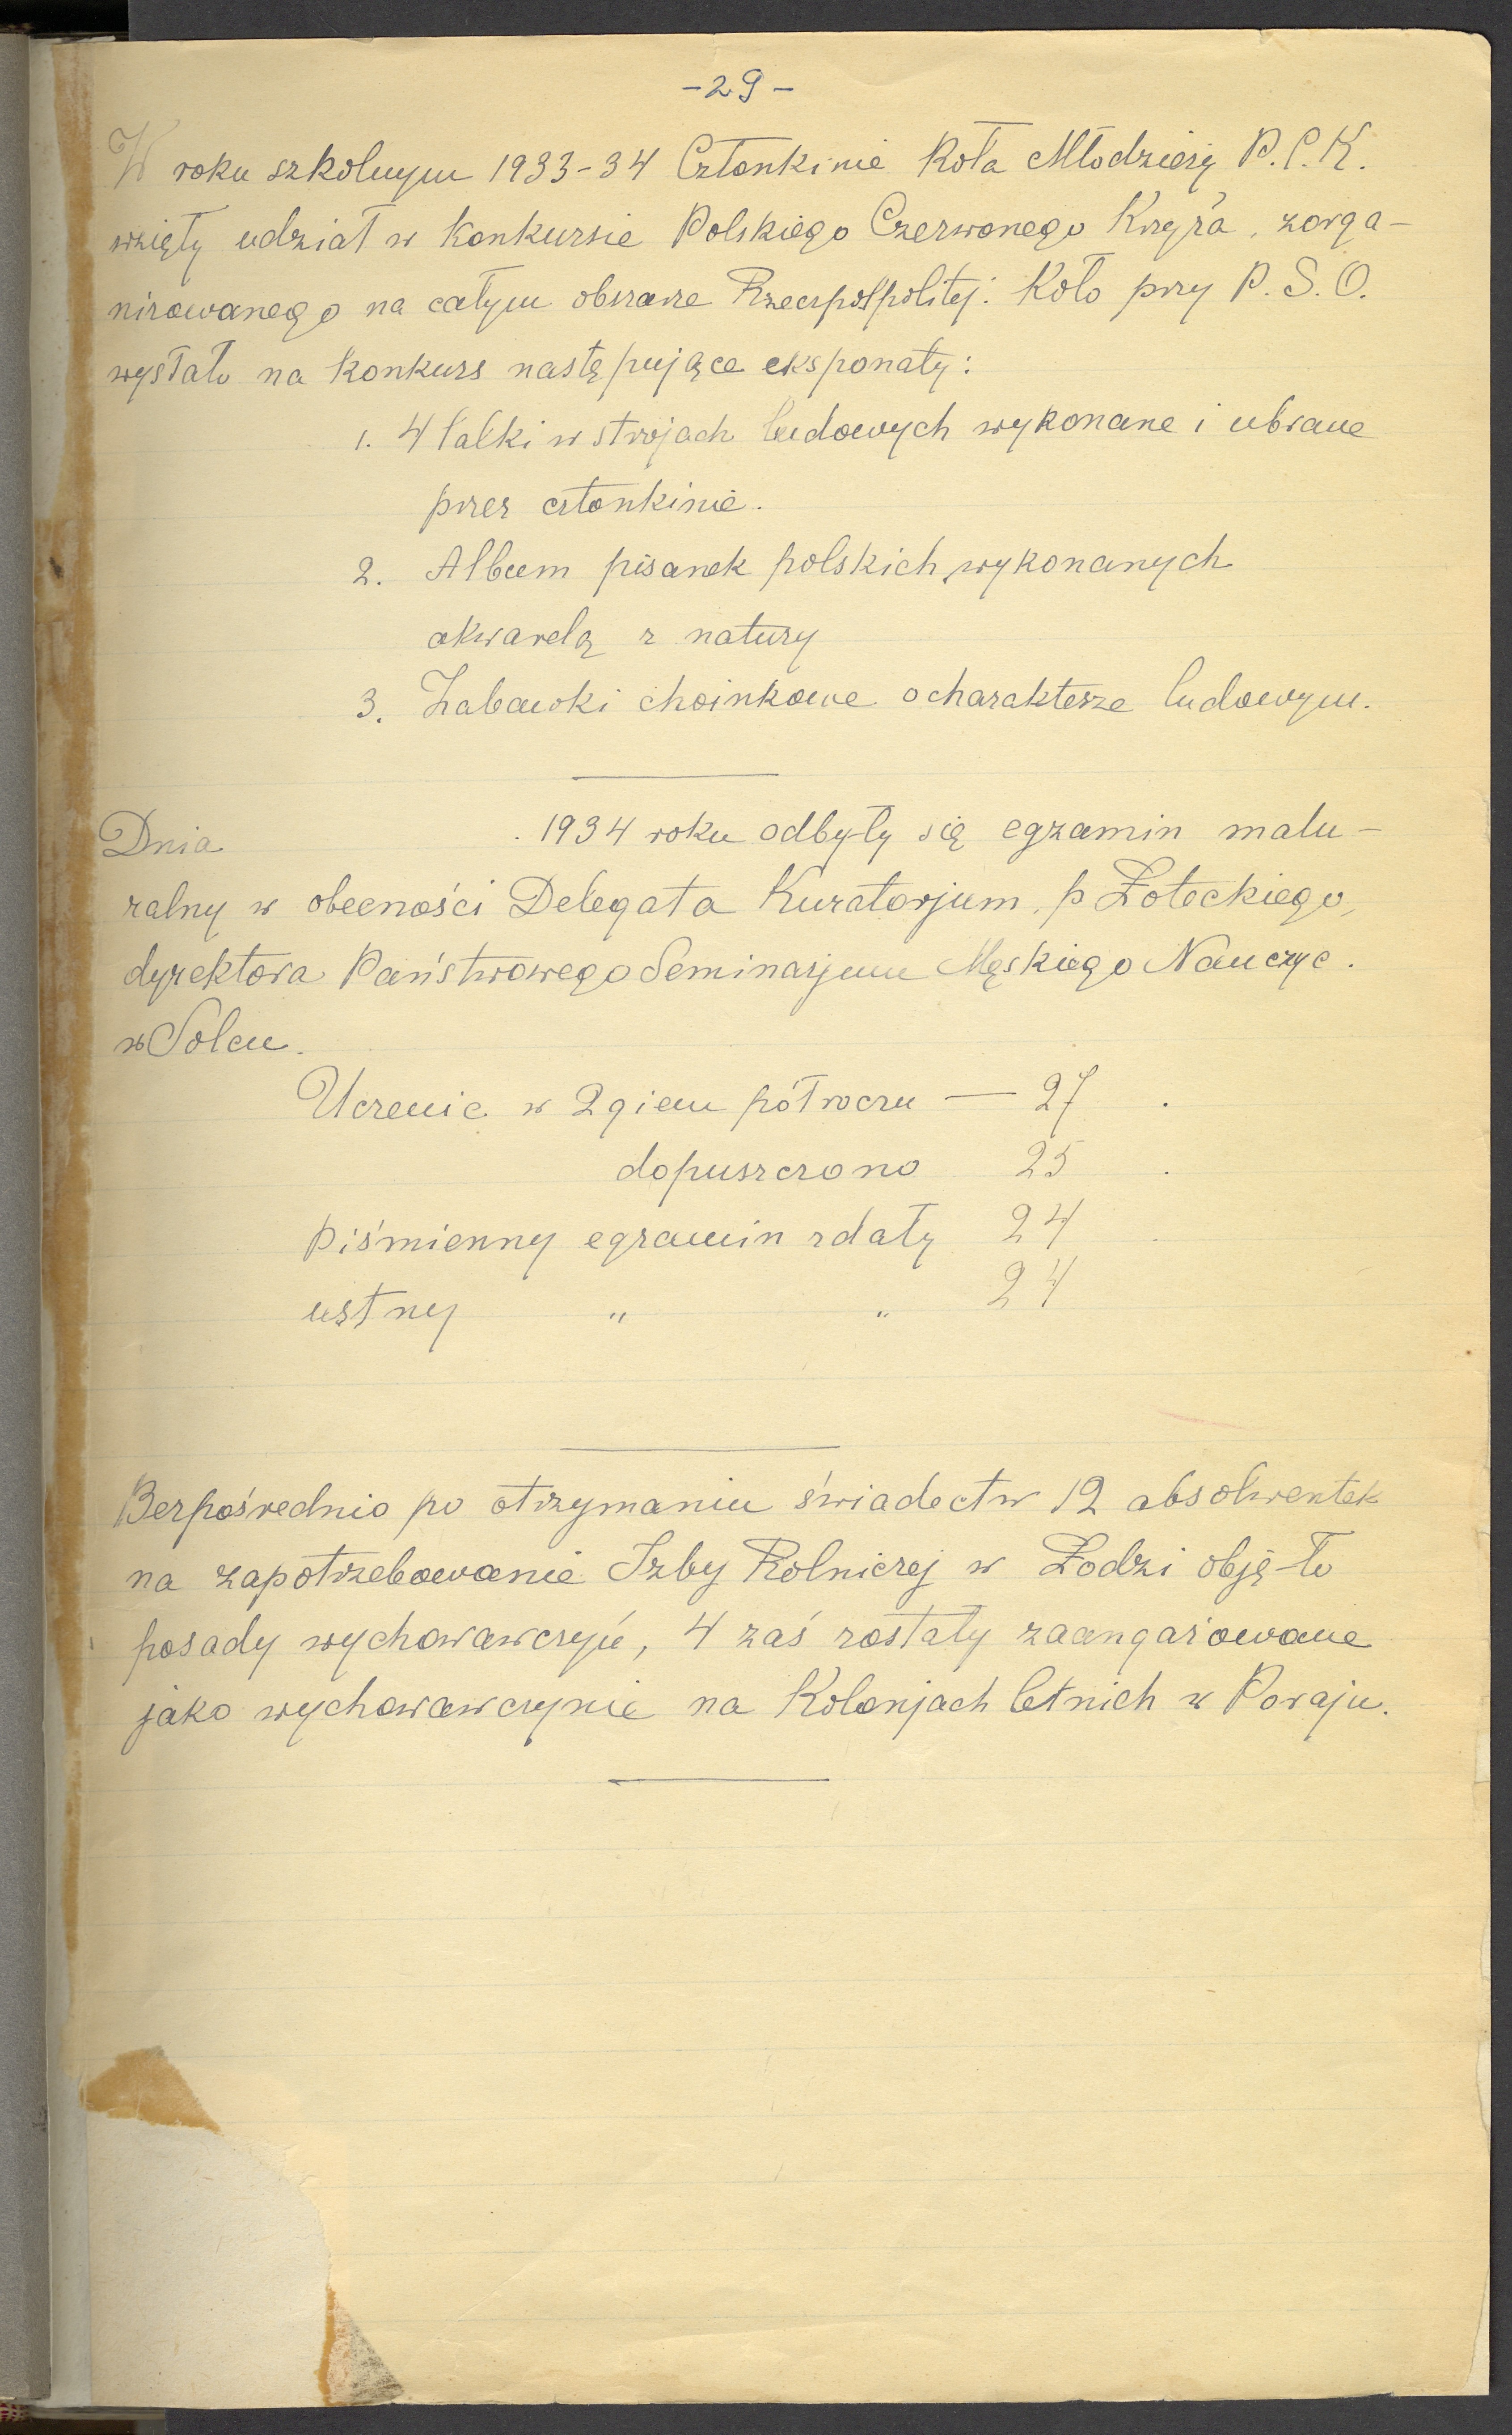 -29-
W roku szkolnym 1933-34 Członkinie Koła Młodzieży P.C.K.
wzięły udział w konkursie Polskiego Czerwonego Krzyża, zorga-
nizowanego na całym obszarze Rzeczpospolitej. Koło przy P.S.O.
wysłało na konkurs następujące eksponaty:
1. 4 lalki w strojach ludowych wykonane i ubrane
przez członkinie.
2. Album pisanek polskich, wykonanych
akwarelą z natury
3. Zabawki choinkowe o charakterze ludowym.
Dnia . 1934 roku odbyły się egzamin matu-
ralny w obecności Delegata Kuratorjum, p Łoteckiego,
dyrektora Państwowego Seminarjum Męskiego Nauczyc.
w Solcu.
Uczenic w 2giem półroczu — 27 .
dopuszczono 25 .
piśmienny egzamin zdały 24
ustny " " 24
Bezpośrednio po otrzymaniu świadectw 12 absolwentek
na zapotrzebowanie Izby Rolniczej w Łodzi obję-ło
posady wychowawczyń, 4 zaś zostały zaangażowane
jako wychowawczynie na Kolonjach letnich w Poraju.